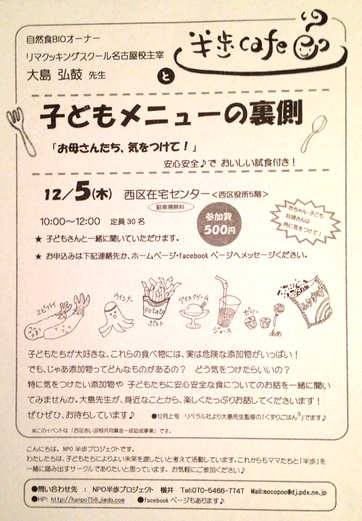 自然食BIOオーナー
リマクッキングスクール名古屋校主宰
大島 弘鼓 先生
と
半歩cafe
子どもメニューの裏側
「お母さんたち、気をつけて！」
安心安全♪で おいしい試食付き！
12/5(木) 西区在宅センター＜西区役所5階＞
駐車場無料
10:00～12:00 定員30名
参加費
500円
赤ちゃん・子ども
妊婦さんは
特に気をつけて！
★ 子どもさんと一緒に聞いていただけます。
★ お申込みは下記連絡先か、ホームページ・facebookページへメッセージください。
エビフライ
ウインナー
POTATO
ポテト
アイスクリーム
ジュース
ゼリー
あめ
子どもたちが大好きな、これらの食べ物には、実は危険な添加物がいっぱい！
でも、じゃあ添加物ってどんなものがあるの？ どう気をつけたらいいの？
特に気をつけたい添加物や 子どもたちに安心安全な食についてのお話を一緒に聞い
てみませんか。大島先生が、身近なことから、楽しくたっぷりお話してくださいます！
ぜひぜひ、お待ちしています♪
●12月上旬 リベラル社より大島先生監修の「くすりごはん」でます♪
※このイベントは「西区赤い羽根共同募金一部助成事業」です。
こんにちは。NPO半歩プロジェクトです。
わたしたちは、子どもたちによりよい未来を渡したいと考えて活動しています。これからもママたちと「半歩」を
一緒に踏み出すサークルでありたいと思っています。お気軽にご参加ください♪
●問い合わせ先 ： NPO半歩プロジェクト 横井 Tel:070-5466-7747 Mail:mocopoo@dj.pdx.ne.jp
●HP: http://hanpo758.jimdo.com ●facebookページもあります♪